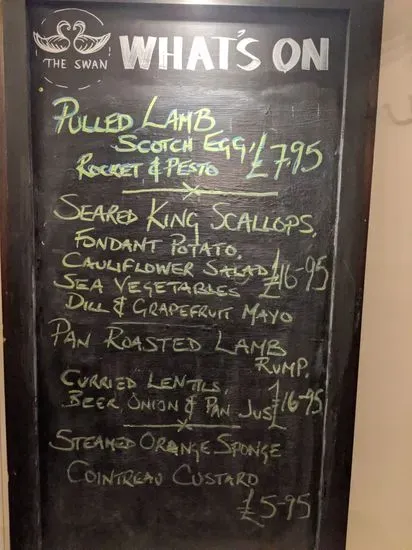 THE SWAN
WHAT'S ON
PULLED LAMB
SCOTCH EGG,
ROCKET & PESTO £7.95
SEARED KING SCALLOPS,
FONDANT POTATO,
CAULIFLOWER SALAD
SEA VEGETABLES £16-95
DILL & GRAPEFRUIT MAYO
PAN ROASTED LAMB
RUMP,
CURRIED LENTILS,
BEER ONION & PAN JUS £16-95
STEAMED ORANGE SPONGE
COINTREAU CUSTARD
£5-95